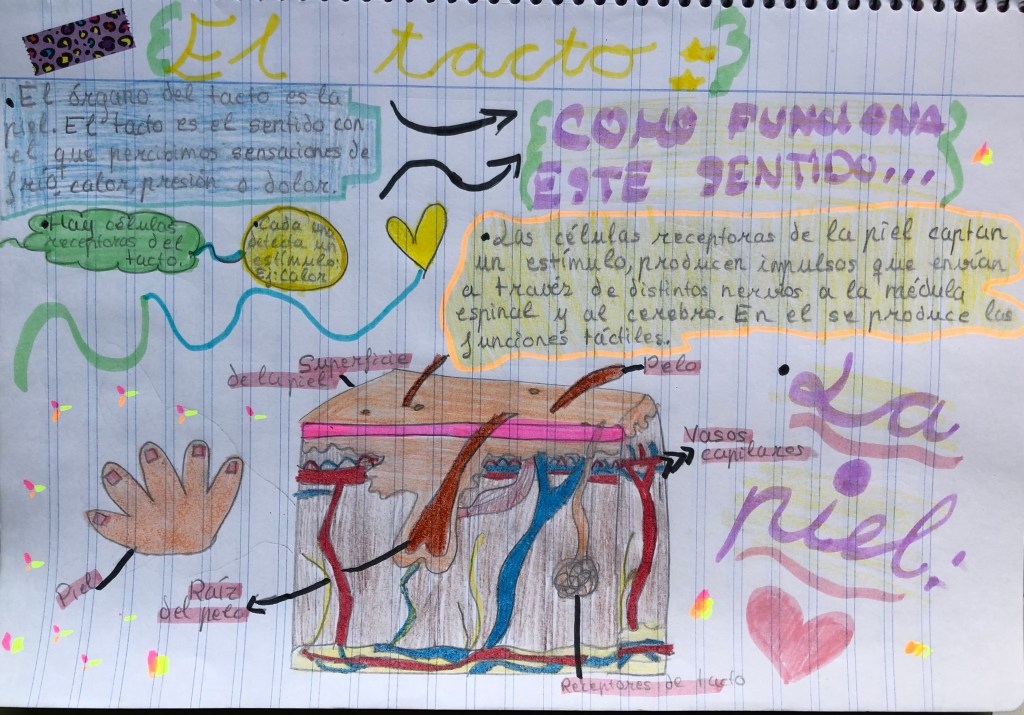 El tacto
• El órgano del tacto es la
piel. El tacto es el sentido con
el que percibimos sensaciones de
frío, calor, presión o dolor.
COMO FUNCIONA
ESTE SENTIDO...
• Hay células
receptoras del
tacto.
• Cada una
detecta un
estímulo.
Ej: calor
• Las células receptoras de la piel captan
un estímulo, producen impulsos que envían
a travéz de distintos nervios a la médula
espinal y al cerebro. En el se produce las
funciones táctiles.
Superficie
de la piel
Pelo
• La
piel.
Vasos
capilares
Piel
Raíz
del pelo
Receptores de tacto